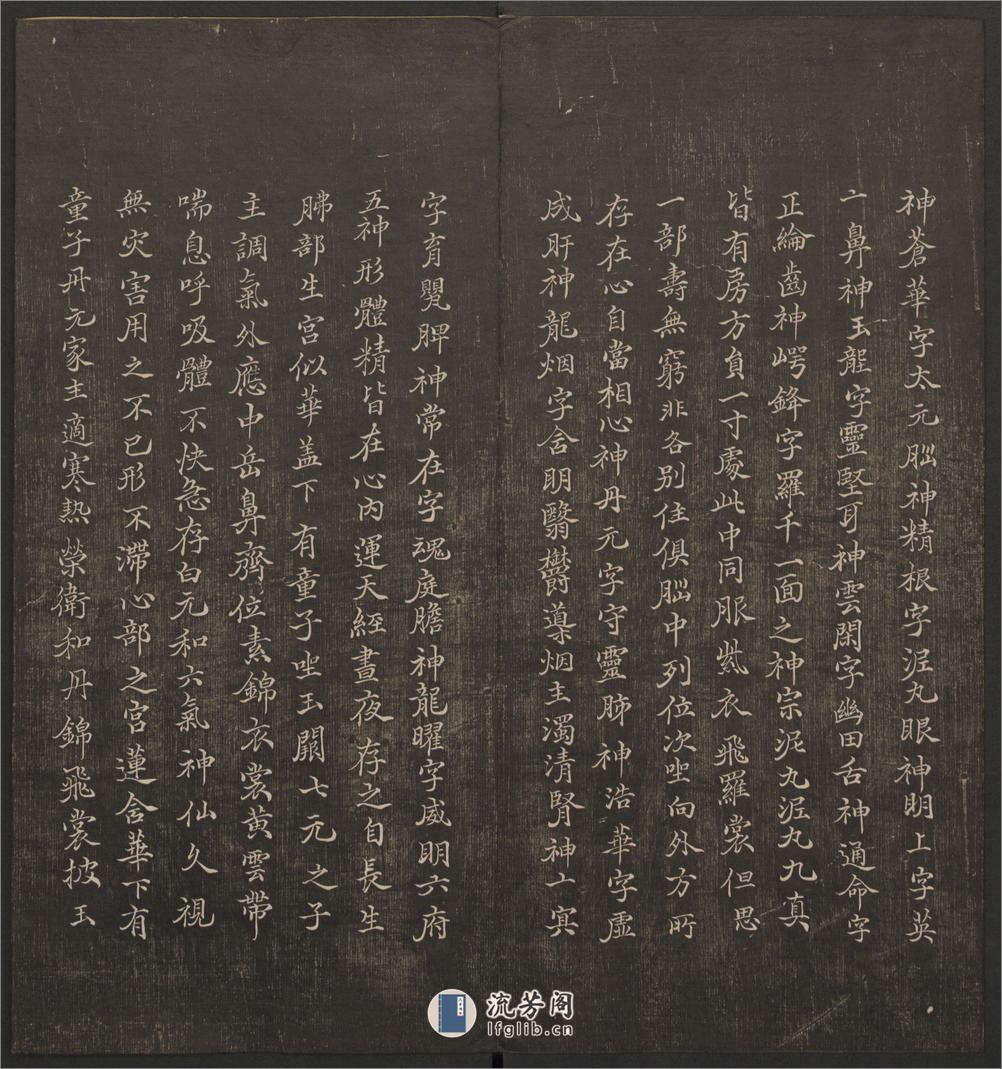 神蒼華字太元腦神精根字泥丸眼神明上字英
二鼻神玉龍字靈堅耳神雲閑字幽田舌神通命字
正綸齒神崿鋒字羅千一面之神宗泥丸泥丸九真
皆有房方負一寸處此中同服紫衣飛羅裳但思
一部壽無窮非各別住俱腦中列位次坐向外方所
存在心自當相心神丹元字守靈肺神浩華字虛
成肝神龍烟字含明翳欝導烟主濁清腎神亠寘
字育嬰脾神常在字魂庭膽神龍曜字威明六府
五神形體精皆在心內運天經晝夜存之自長生
肺部生宮似華盖下有童子坐玉闕七元之子
主調氣外應中岳鼻齊位素錦衣裳黄雲帶
喘息呼吸體不快急存白元和六氣神仙久視
無灾害用之不已形不滯心部之宮蓮含華下有
童子丹元家主適寒熱榮衛和丹錦飛裳披玉
流芳阁
lfglib.cn